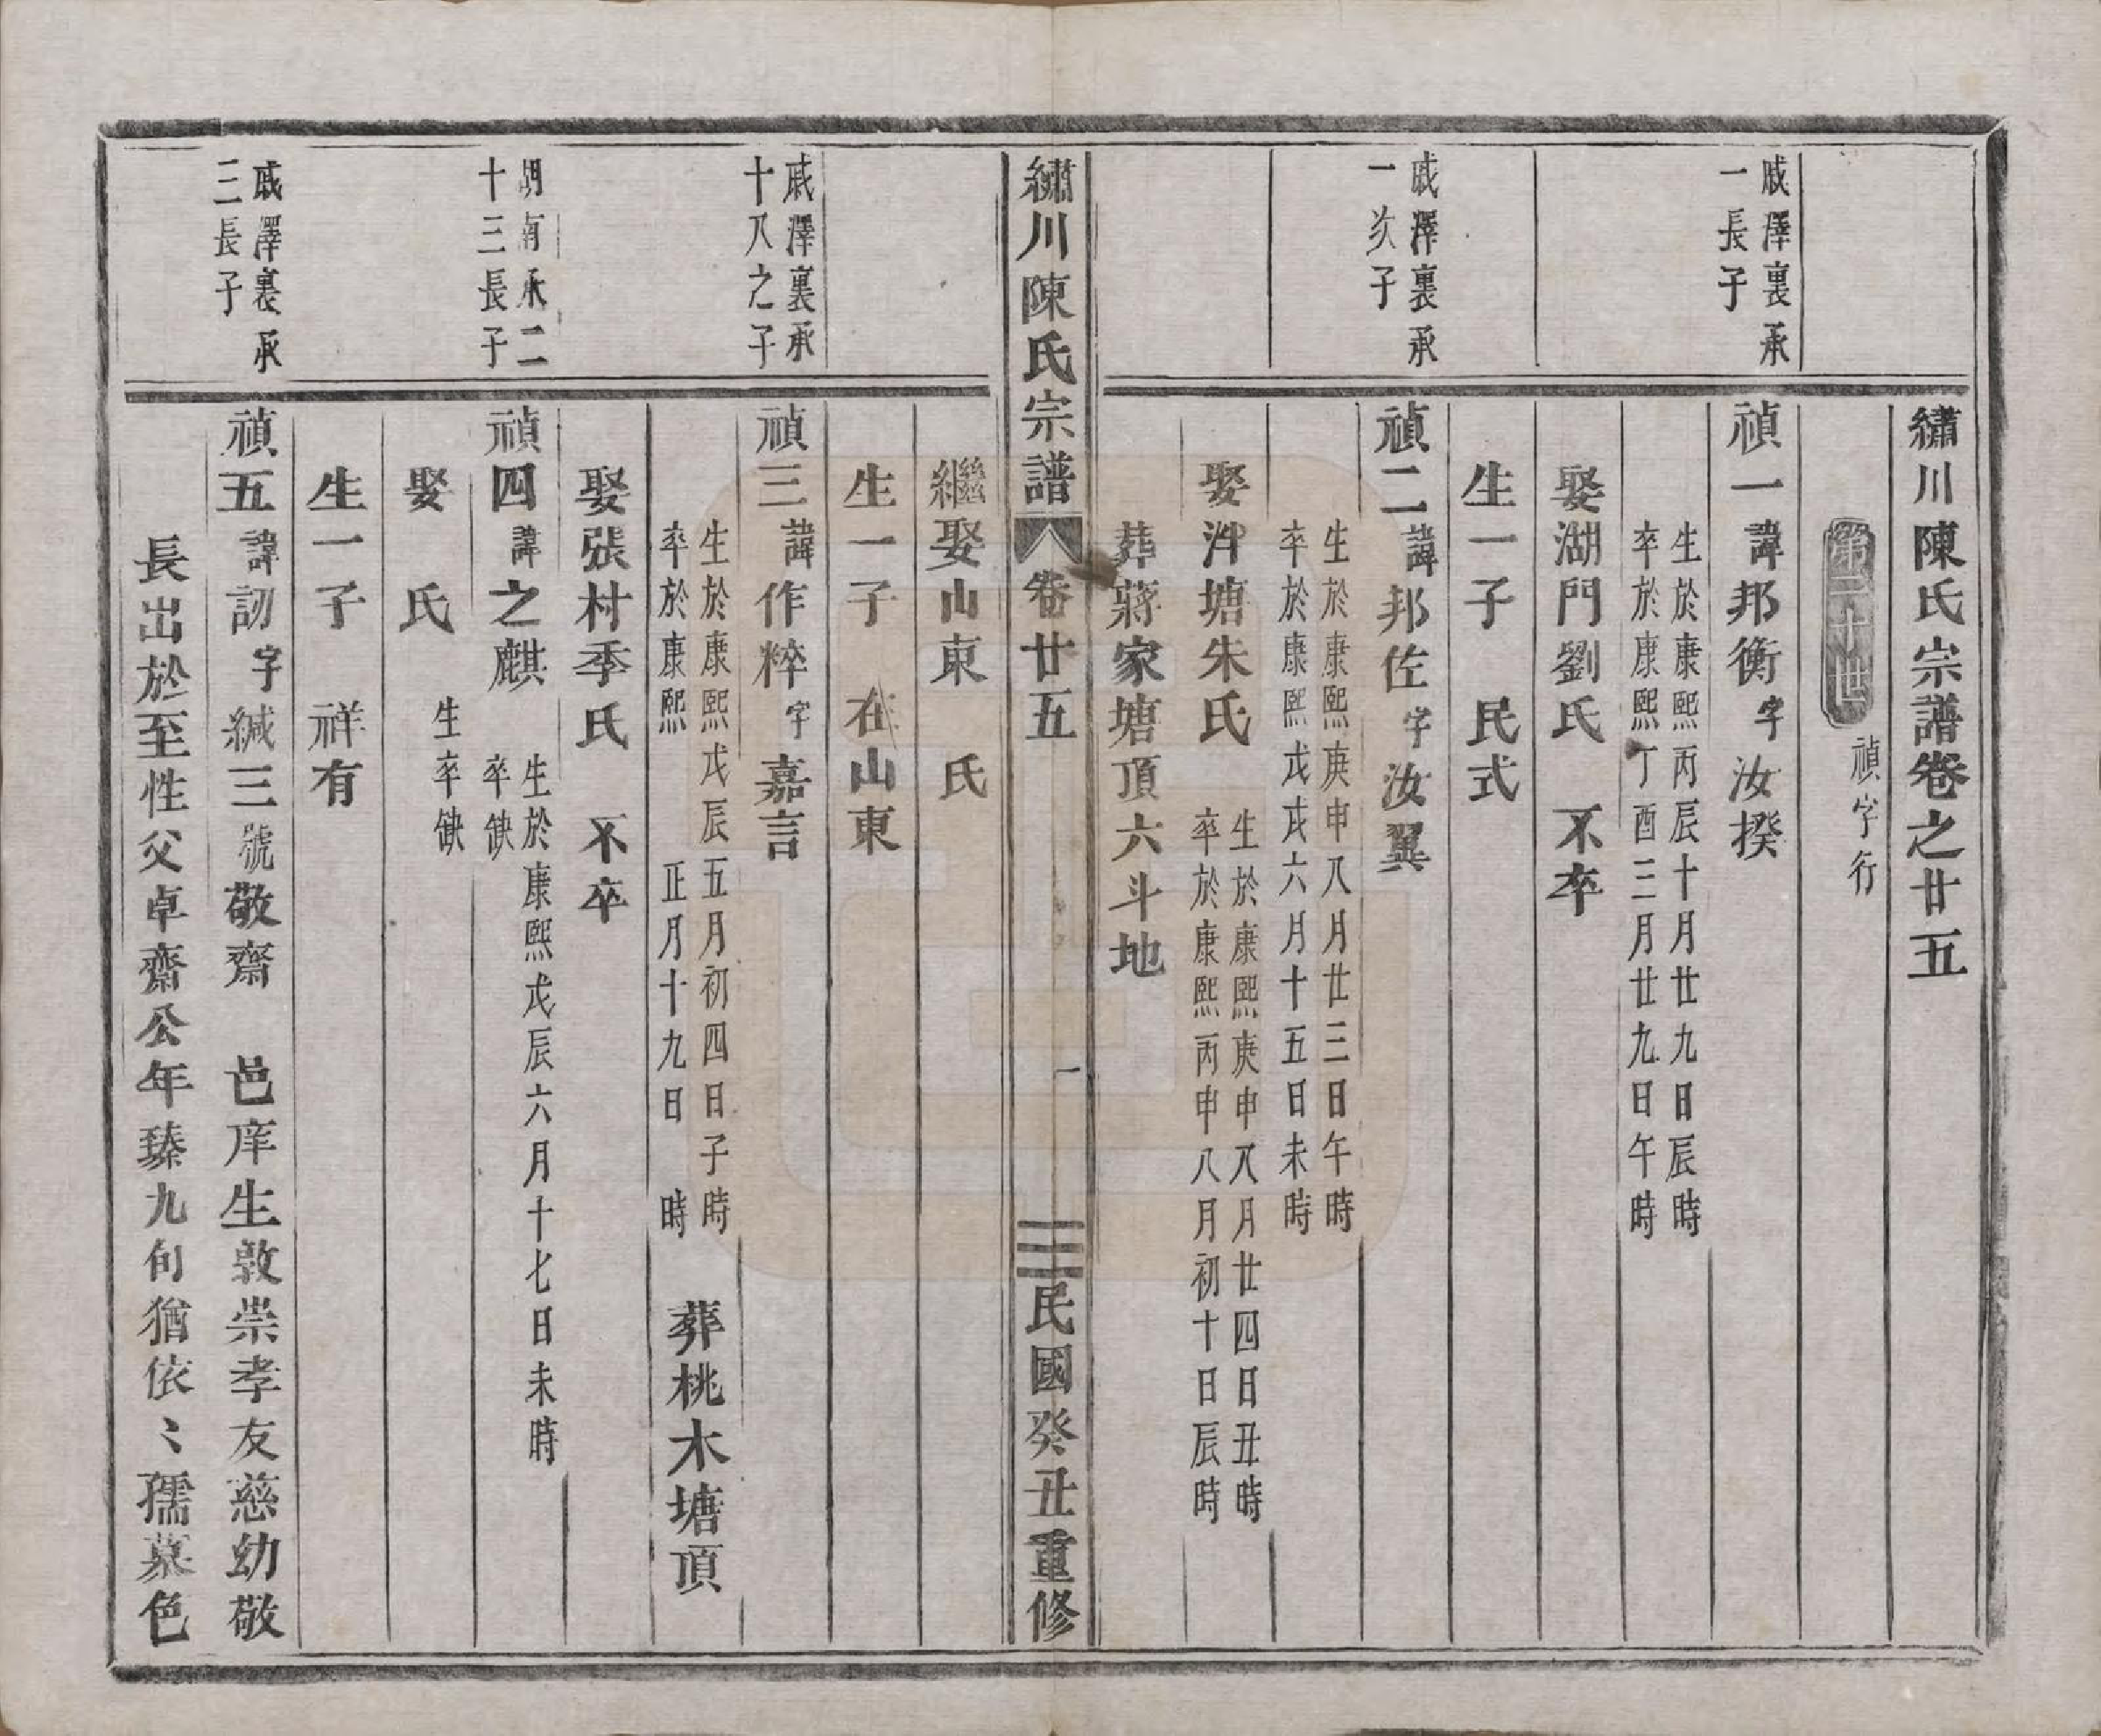 繡川陳氏宗譜卷之廿五
第二十世 禎字行
戚澤裏承
一長子
禎一 諱 邦衡 字 汝揆
生於康熙丙辰十月廿九日辰時
卒於康熙丁酉三月廿九日午時
娶湖門劉氏 不卒
生一子 民式
戚澤裏承
一次子
禎二 諱 邦佐 字 汝翼
生於康熙庚申八月廿三日午時
卒於康熙戊戌六月十五日未時
娶沣塘朱氏
生於康熙庚申八月廿四日丑時
卒於康熙丙申八月初十日辰時
葬蔣家塘頂六斗地
繡川陳氏宗譜 卷廿五 一 民國癸丑重修
繼娶山東 氏
生一子 在山東
戚澤裏承
十八之子
禎三 諱 作粹 字 嘉言
生於康熙戊辰五月初四日子時
卒於康熙 正月十九日 時
葬桃木塘頂
娶張村季氏 不卒
湖南承二
十三長子
禎四 諱 之麒
生於康熙戊辰六月十七日未時
卒缺
娶 氏 生卒缺
生一子 祥有
戚澤裏承
二長子
禎五 諱 訒 字 緘三 號 敬齋 邑庠生敦崇孝友慈幼敬
長出於至性父卓齋公年臻九旬猶依〻孺慕色